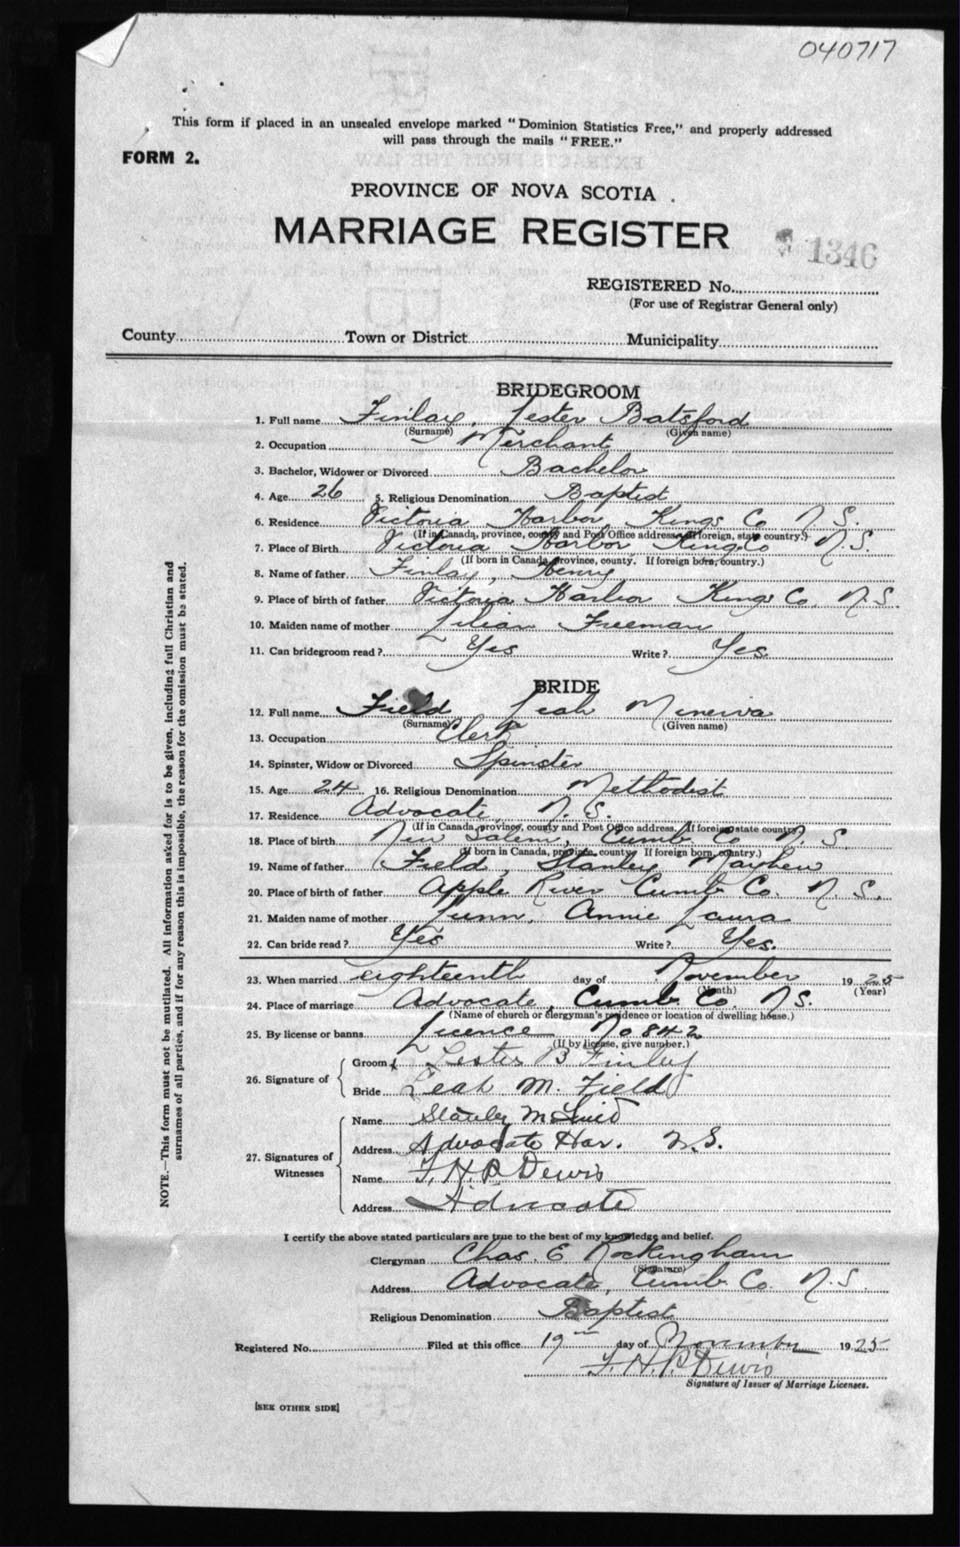 040717
This form if placed in an unsealed envelope marked "Dominion Statistics Free," and properly addressed
will pass through the mails "FREE."
FORM 2.
PROVINCE OF NOVA SCOTIA
MARRIAGE REGISTER
1346
REGISTERED No.
(For use of Registrar General only)
County Town or District Municipality
BRIDEGROOM
1. Full name Finlay, Lester Batsford
(Surname) (Given name)
2. Occupation Merchant
3. Bachelor, Widower or Divorced Bachelor
4. Age 26 5. Religious Denomination Baptist
6. Residence Victoria Harbor Kings Co N.S.
(If in Canada, province, county and Post Office address, if foreign, state country.)
7. Place of Birth Victoria Harbor Kings Co N.S.
(If born in Canada, province, county. If foreign born, country.)
8. Name of father Finlay, Henry
9. Place of birth of father Victoria Harbor Kings Co. N.S.
10. Maiden name of mother Lilian Freeman
11. Can bridegroom read? Yes Write? Yes.
BRIDE
12. Full name Field Leah Minerva
(Surname) (Given name)
13. Occupation Clerk
14. Spinster, Widow or Divorced Spinster
15. Age 24 16. Religious Denomination Methodist
17. Residence Advocate, N.S.
(If in Canada, province, county and Post Office address. If foreign state country)
18. Place of birth New Salem, Cumb. Co N.S.
(If born in Canada, province, county. If foreign born, country.)
19. Name of father Field, Stanley Mayhew
20. Place of birth of father Apple River Cumb Co. N.S.
21. Maiden name of mother Annie Laura
22. Can bride read? Yes Write? Yes.
23. When married eighteenth day of November 1925
(Month) (Year)
24. Place of marriage Advocate, Cumb. Co. N.S.
(Name of church or clergyman's residence or location of dwelling house.)
25. By license or banns Licence No 842
(If by license, give number.)
26. Signature of
Groom Lester B Finley
Bride Leah M. Field
27. Signatures of Witnesses
Name Stanley M
Address Advocate Har. N.S.
Name F. H. P. Dewis
Address Advocate
I certify the above stated particulars are true to the best of my knowledge and belief.
Clergyman Chas. E Rockingham
(Signature)
Address Advocate, Cumb. Co. N.S.
Religious Denomination Baptist
Registered No. Filed at this office 19th day of November 1925
F. H. P. Dewis
Signature of Issuer of Marriage Licenses.
[SEE OTHER SIDE]
NOTE.—This form must not be mutilated. All information asked for is to be given, including full Christian and
surnames of all parties, and if for any reason this is impossible, the reason for the omission must be stated.